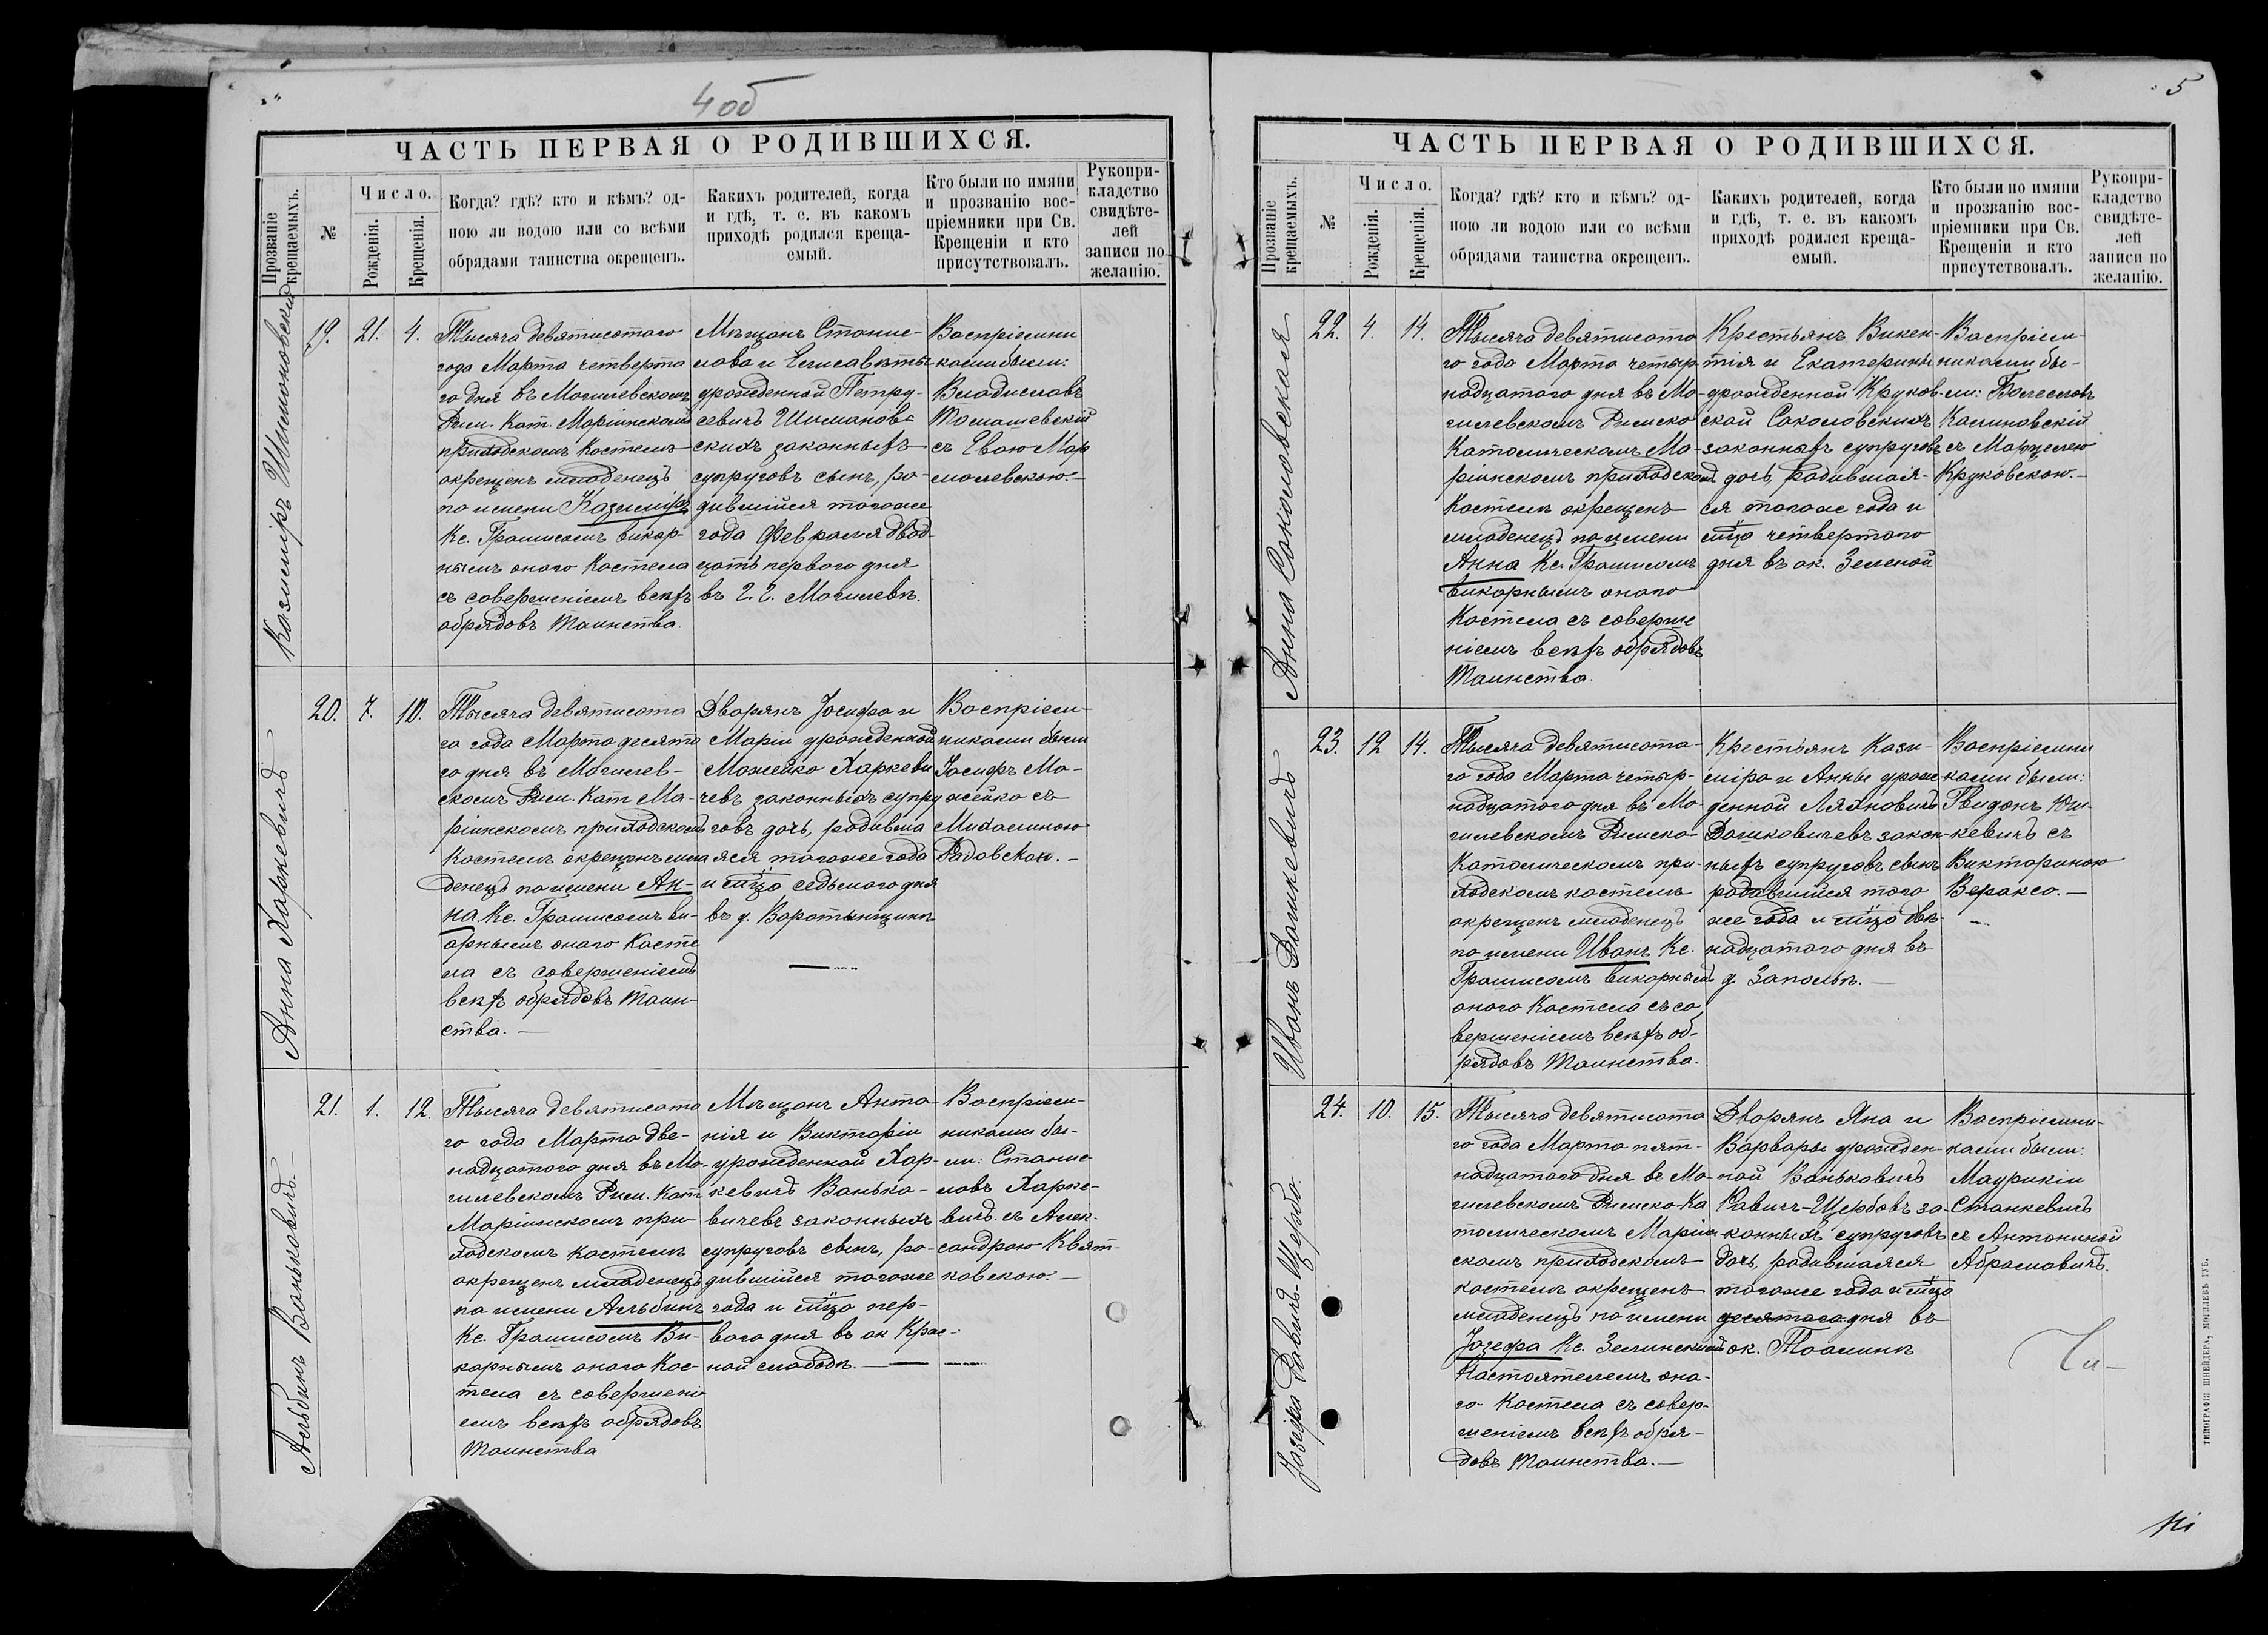 4 об
ЧАСТЬ ПЕРВАЯ О РОДИВШИХСЯ.
Прозваніе крещаемыхъ.
№
Число.
Рожденія.
Крещенія.
Когда? гдѣ? кто и кѣмъ? од-
ною ли водою или со всѣми
обрядами таинства окрещенъ.
Какихъ родителей, когда
и гдѣ, т. е. въ какомъ
приходѣ родился креща-
емый.
Кто были по имяни
и прозванію вос-
пріемники при Св.
Крещеніи и кто
присутствовалъ.
Рукопри-
кладство
свидѣте-
лей
записи по
желанію.
Казиміръ Шимановскій
19. 21. 4.
Тысяча девятисотаго
года Марта четверта
го дня въ Могилевскомъ
Рим. Кат. Маріинскомъ
приходскомъ Костелѣ
окрещенъ младенецъ
по имени Казиміръ
Кс. Грамисомъ викар-
нымъ оного Костела
съ совершеніемъ всѣхъ
обрядовъ Таинства.
Мѣщанъ Станис-
лава и Елисаветы
урожденной Петру-
севичъ Шиманов-
скихъ законныхъ
супруговъ сынъ, ро-
дившійся тогоже
года Февраля двад-
цать первого дня
въ г. г. Могилевѣ.
Воспріемни
ками были:
Владиславъ
Томашевскій
съ Евою Мар
молевскою.-
Анна Харкевичъ
20. 7. 10.
Тысяча девятисота
го года Марта десята
го дня въ Могилев-
скомъ Рим. Кат Ма-
ріинскомъ приходскомъ
Костелѣ окрещенъ мла
денецъ по имени Ан-
на Кс. Грамисомъ ви-
арнымъ оного Косте
ла съ совершеніемъ
всѣхъ обрядовъ Таин-
ства.-
Дворянъ Іосифа и
Маріи урожденной
Можейко Харкеви
чевъ законныхъ супру
говъ дочь, родивша
яся тогоже года
и мца седьмого дня
въ д. Воротынщинѣ
Воспріем-
никами были
Іосифъ Мо-
жейко съ
Михалиною
Радовскою.-
Альбинъ Ваньковичъ.-
21. 1. 12.
Тысяча девятисота
го года Марта две-
надцатого дня въ Мо-
гилевскомъ Рим. Кат
Маріинскомъ при-
ходскомъ костелѣ
окрещенъ младенецъ
по имени Альбинъ
Кс. Грамисомъ Ви-
карнымъ оного Кос-
тела съ совершені
емъ всѣхъ обрядовъ
Таинства
Мѣщанъ Анто-
нія и Викторіи
урожденной Хар-
кевичъ Ванько-
вичевъ законныхъ
супруговъ сынъ, ро-
дившійся тогоже
года и мца пер-
вого дня въ ок Крас-
ной слабодѣ.-
Воспріем-
никами бы-
ли: Станис-
лавъ Харке-
вичъ съ Алек-
сандрою Квят-
ковскою.-
5
ЧАСТЬ ПЕРВАЯ О РОДИВШИХСЯ.
Прозваніе крещаемыхъ.
№
Число.
Рожденія.
Крещенія.
Когда? гдѣ? кто и кѣмъ? од-
ною ли водою или со всѣми
обрядами таинства окрещенъ.
Какихъ родителей, когда
и гдѣ, т. е. въ какомъ
приходѣ родился креща-
емый.
Кто были по имяни
и прозванію вос-
пріемники при Св.
Крещеніи и кто
присутствовалъ.
Рукопри-
кладство
свидѣте-
лей
записи по
желанію.
Анна Соколовская
22. 4. 14.
Тысяча девятисота
го года Марта четыр
надцатого дня въ Мо-
гилевскомъ Римско
Католическомъ Ма-
ріинскомъ приходскомъ
Костелѣ окрещенъ
младенецъ по имени
Анна Кс. Грамисомъ
викарнымъ оного
Костела съ соверше
ніемъ всѣхъ обрядовъ
Таинства.
Крестьянъ Викен-
тія и Екатерины
урожденной Круков-
ской Соколовскихъ
законныхъ супруговъ
дочь, родившая-
ся тогоже года и
мца четвертого
дня въ ок. Зеленой
Воспріем-
никами бы-
ли: Болеславъ
Калиновскій
съ Марцелею
Круковскою.-
Иванъ Дашкевичъ
23. 12 14.
Тысяча девятисота-
го года Марта четыр-
надцатого дня въ Мо
гилевскомъ Римско-
Католическомъ при-
ходскомъ костелѣ
окрещенъ младенецъ
по имени Иванъ Кс.
Грамисомъ викарнымъ
оного Костела съ со
вершеніемъ всѣхъ об-
рядовъ Таинства.
Крестьянъ Кази-
міра и Анны урож-
денной Ляхновичъ
Дашковичевъ закон-
ныхъ супруговъ сынъ
родившійся того
же года и мца две-
надцатого дня въ
д. Запольѣ.-
Воспріемни
ками были:
Гвидонъ Юш-
кевичъ съ
Викториною
Вераксо.-
Іозефа Равичъ-Щербо.
24. 10. 15.
Тысяча девятисота
го года Марта пят-
надцатого дня въ Мо-
гилевскомъ Римско-Ка
толическомъ Маріин
скомъ приходскомъ
костелѣ окрещенъ
младенецъ по имени
Іозефа Кс. Зелинскимъ
Настоятелемъ оно-
го Костела съ совер-
шеніемъ всѣхъ обря-
довъ Таинства.-
Дворянъ Яна и
Варвары урожден-
ной Ваньковичъ
Равичъ-Щербовъ за-
конныхъ супруговъ
дочь, родившаяся
тогоже года и мца
десятого дня въ
ок.
Воспріемни-
ками были:
Маурикіи
Станкевичъ
съ Антониной
Абрамовичъ.
ТИПОГРАФІЯ ШНЕЙДЕРА, МОГИЛЕВЪ ГУБ.